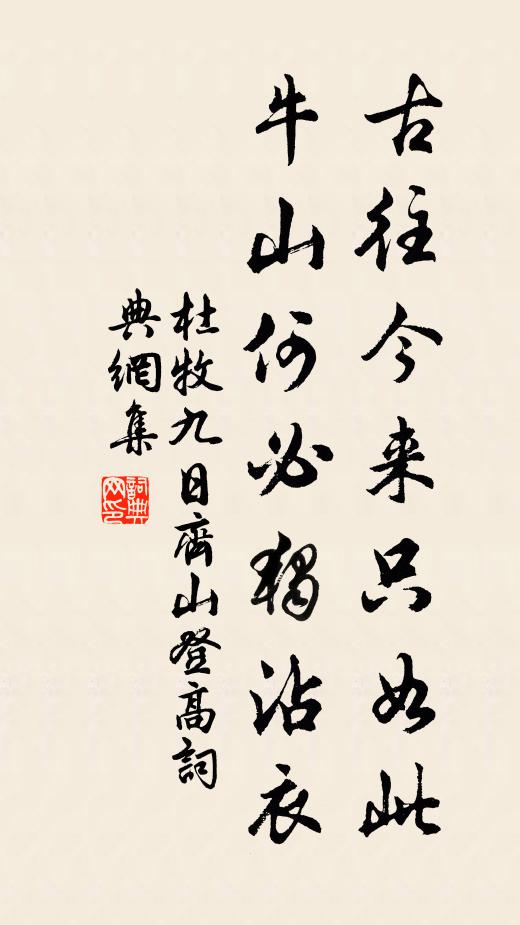 古往今来只如此
牛山何必獨沾衣
杜牧九日齊山登高詞
典網集
詞典網印